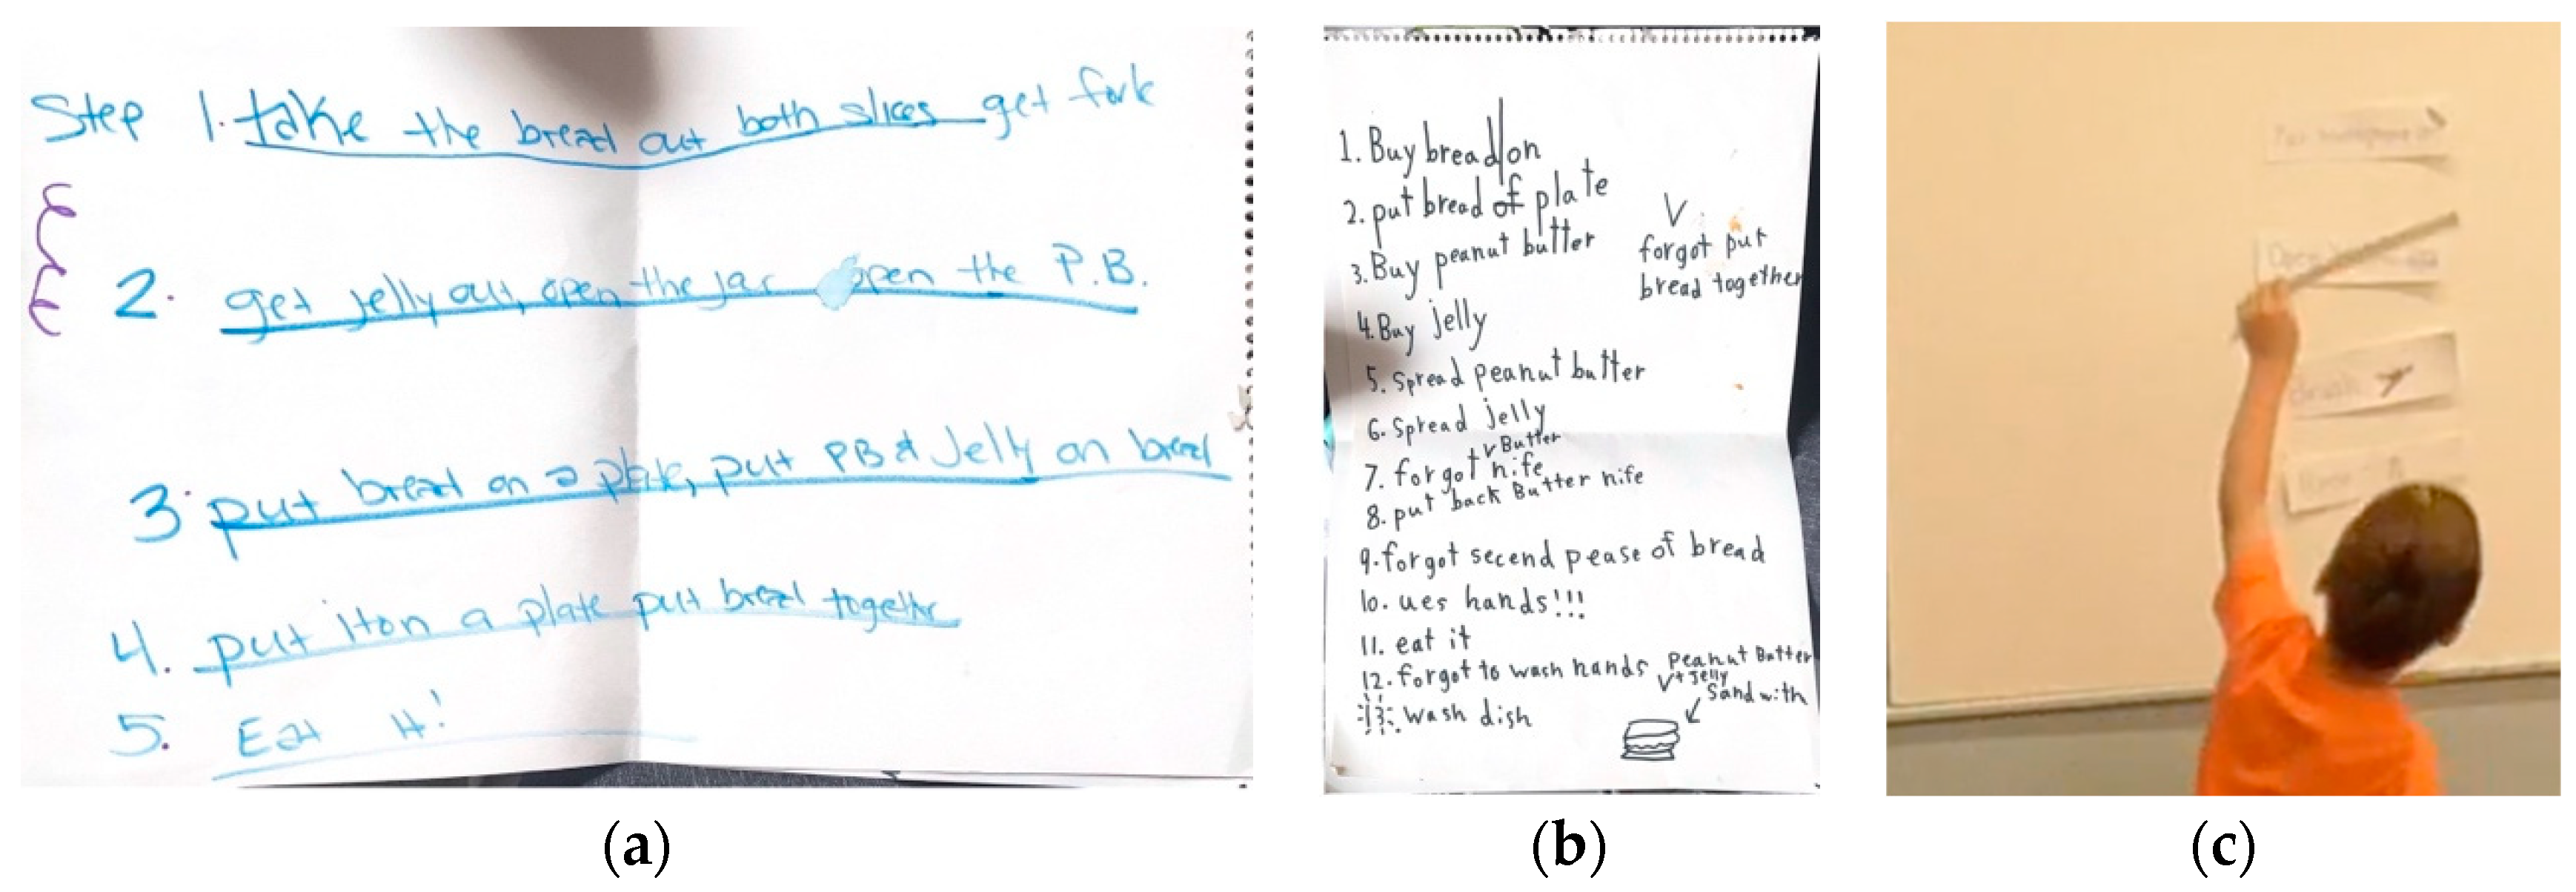 Step 1. take the bread out both slices get fork
2. get jelly out, open the jar open the P.B.
3. put bread on a plate, put PB & Jelly on bread
4. put it on a plate put bread together
5. Eat it!
(a)
1. Buy bread on
2. put bread of plate
3. Buy peanut butter
V
forgot put
bread together
4. Buy jelly
5. Spread peanut butter
6. Spread jelly
v Butter
7. forgot nife
8. put back Butter nife
9. forgot second pease of bread
10. ues hands!!!
11. eat it
12. forgot to wach hands
13. wash dish
Peanut Butter
v + Jelly
Sandwith
(b)
Open
Brush
(c)